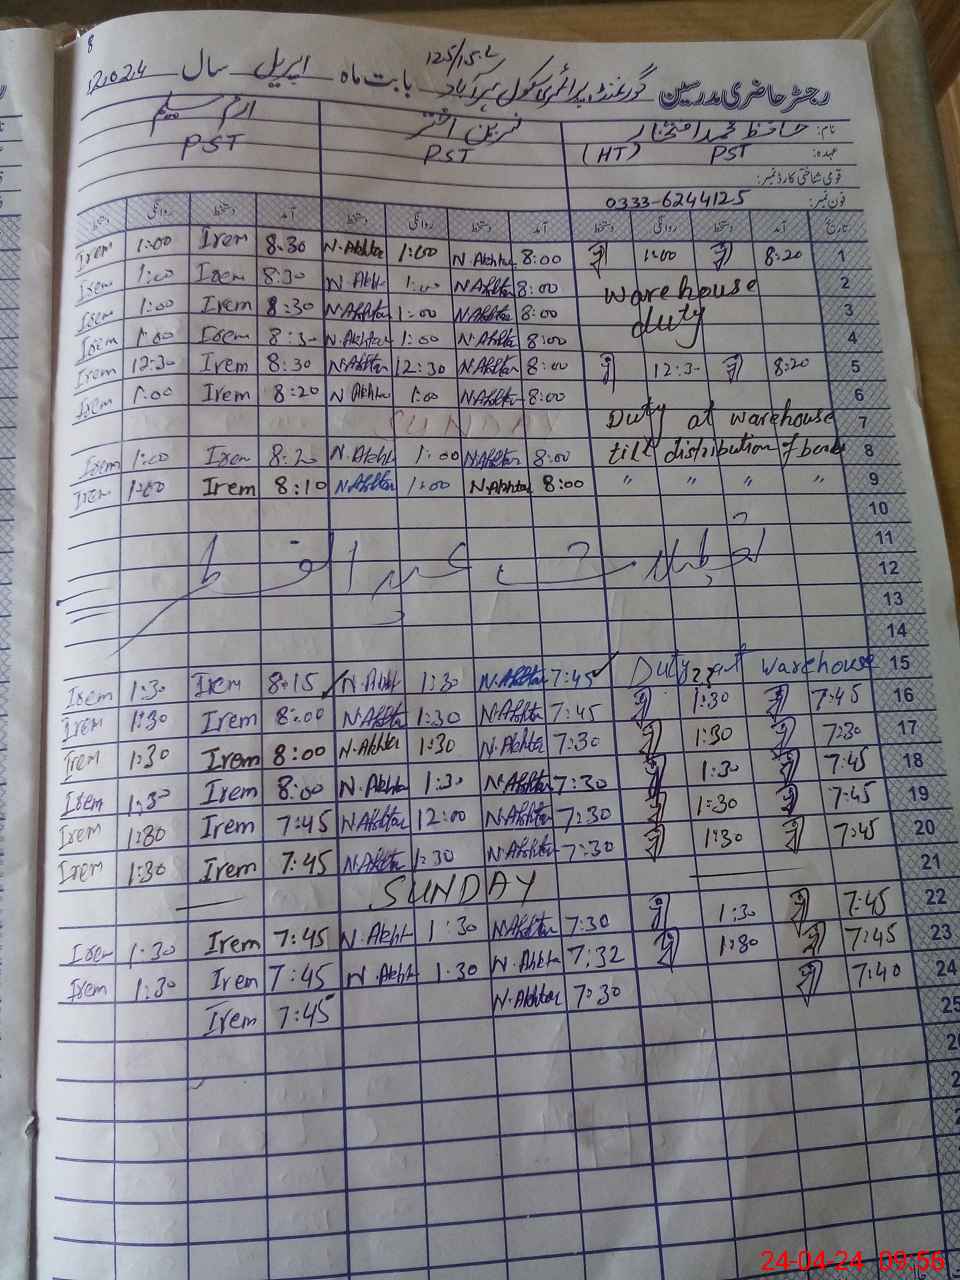 8
125/15.L
رجسٹر حاضری مدرسین گورنمنٹ پرائمری سکول بابت ماہ اپریل سال 2024
نام: حافظ محمد افتخار نسرین اختر ارم سلیم
عہدہ: PST (HT) PST PST
قومی شناختی کارڈ نمبر:
فون نمبر: 0333-6244125
تاریخ آمد دستخط روانگی دستخط آمد دستخط روانگی دستخط آمد دستخط روانگی دستخط
Irem 1:00 Irem 8:30 N.Akhtar 1:00 N.Akhtar 8:00 1:00 8:20 1
Irem 1:00 Irem 8:30 N.Akht 1:00 N.Akhtar 8:00 warehouse 2
Irem 1:00 Irem 8:30 N.Akhtar 1:00 N.Akhtar 8:00 duty 3
Irem 1:00 Irem 8:30 N.Akhtar 1:00 N.Akhtar 8:00 4
Irem 12:30 Irem 8:30 N.Akhtar 12:30 N.Akhtar 8:00 12:30 8:20 5
Irem 1:00 Irem 8:20 N.Akhtar 1:00 N.Akhtar 8:00 6
SUNDAY Duty at warehouse 7
Irem 1:00 Irem 8:20 N.Akht 1:00 N.Akhtar 8:00 till distribution of books 8
Irem 1:00 Irem 8:10 N.Akhtar 1:00 N.Akhtar 8:00 " " " " 9
10
11
تعطیلات عید الفطر 12
13
14
Irem 1:30 Irem 8:15 N.Akht 1:30 N.Akhtar 7:45 Duty at warehouse 15
Irem 1:30 Irem 8:00 N.Akhtar 1:30 N.Akhtar 7:45 1:30 7:45 16
Irem 1:30 Irem 8:00 N.Akhtar 1:30 N.Akhtar 7:30 1:30 7:30 17
Irem 1:30 Irem 8:00 N.Akhtar 1:30 N.Akhtar 7:30 1:30 7:45 18
Irem 1:30 Irem 7:45 N.Akhtar 12:00 N.Akhtar 7:30 1:30 7:45 19
Irem 1:30 Irem 7:45 N.Akhtar 1:30 N.Akhtar 7:30 1:30 7:45 20
SUNDAY 21
Irem 1:30 Irem 7:45 N.Akht 1:30 N.Akhtar 7:30 1:30 7:45 22
Irem 1:30 Irem 7:45 N.Akht 1:30 N.Akhta 7:32 1:30 7:45 23
Irem 7:45 N.Akhtar 7:30 7:40 24
25
24-04-24 09:56